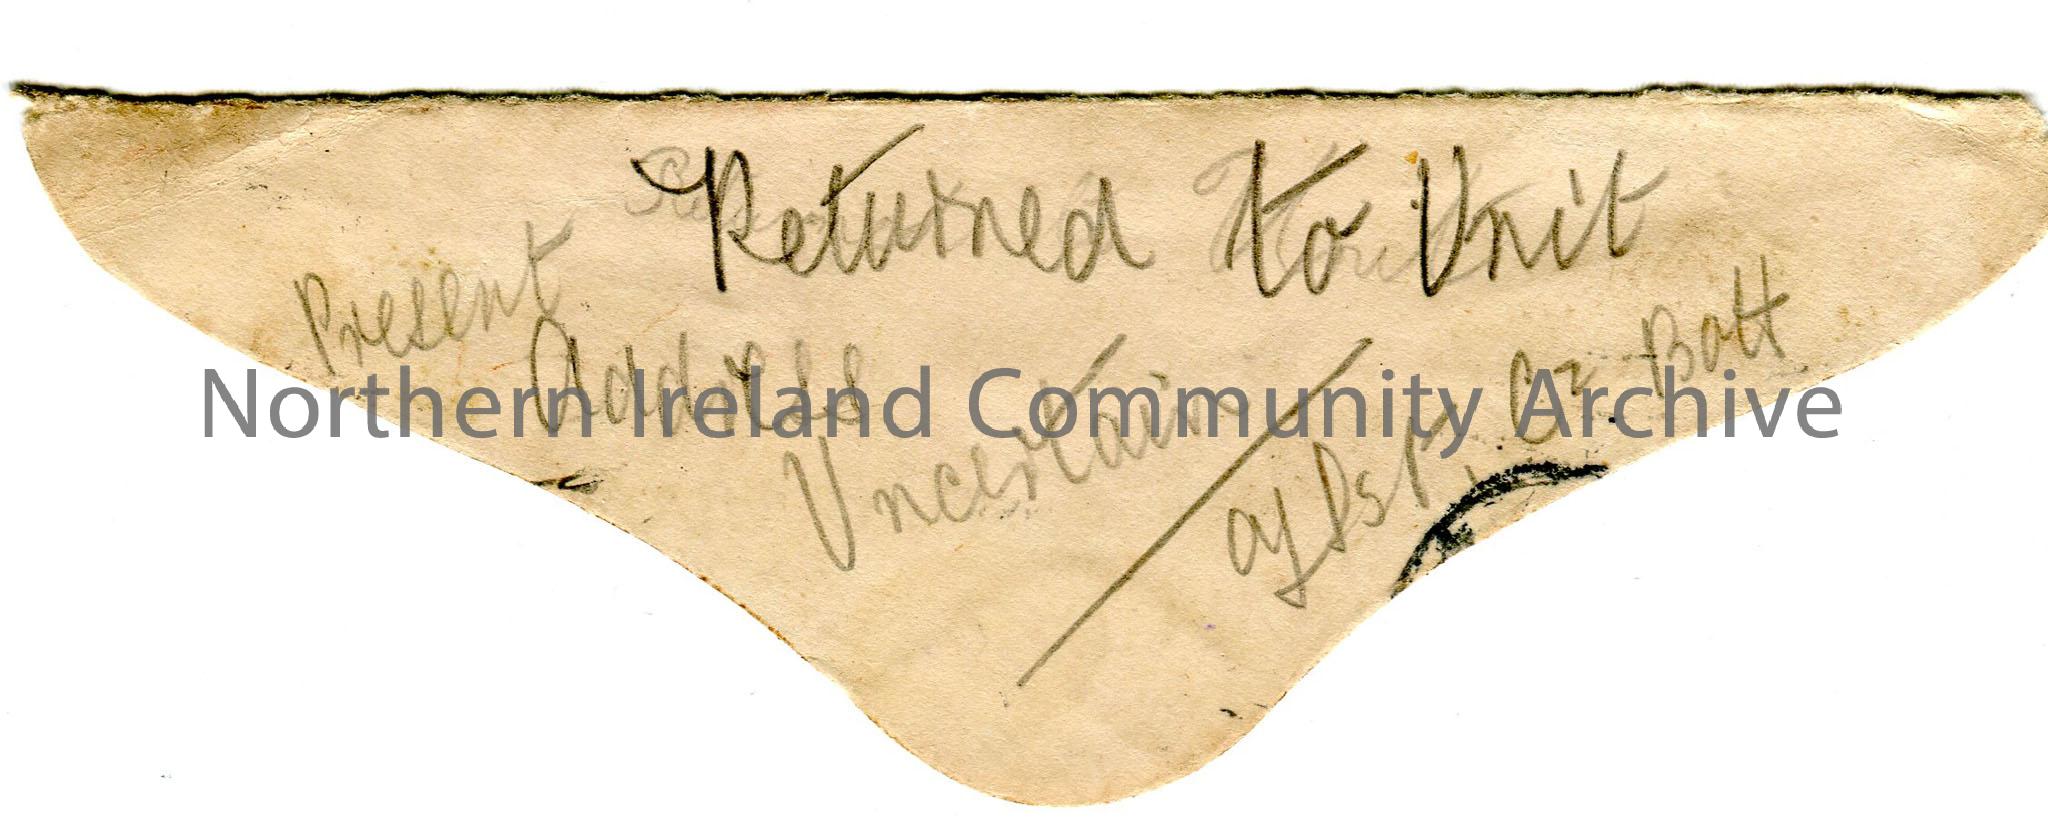 Returned to Unit
Present
Address
Uncertain
Northern Ireland Community Archive